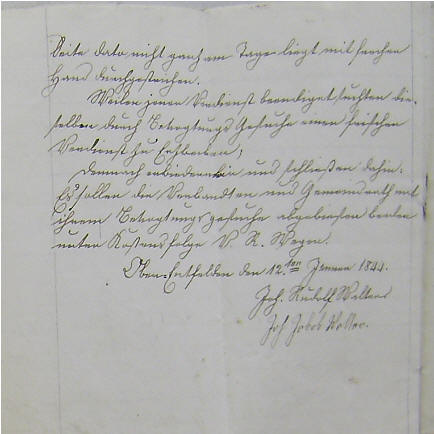 Seite dato nicht ganz am Tage liegt mit
Hand durchgestrichen.
Weilen jenen Verdienst beendiget suchten die-
selben durch Betragtungs Gesuche einen frischen
Verdienst zu
Demnach und schließen dahin.
Es sollen die Verwandten und Gemeindrath mit
ihrem Betragtungsgesuche abgewiesen werden
unter Kostensfolge V. R. Wegen.
Ober-Entfelden den 12.ten Jenner 1844.
Joh. Rudolf Walters
Joh Jakob Walter.